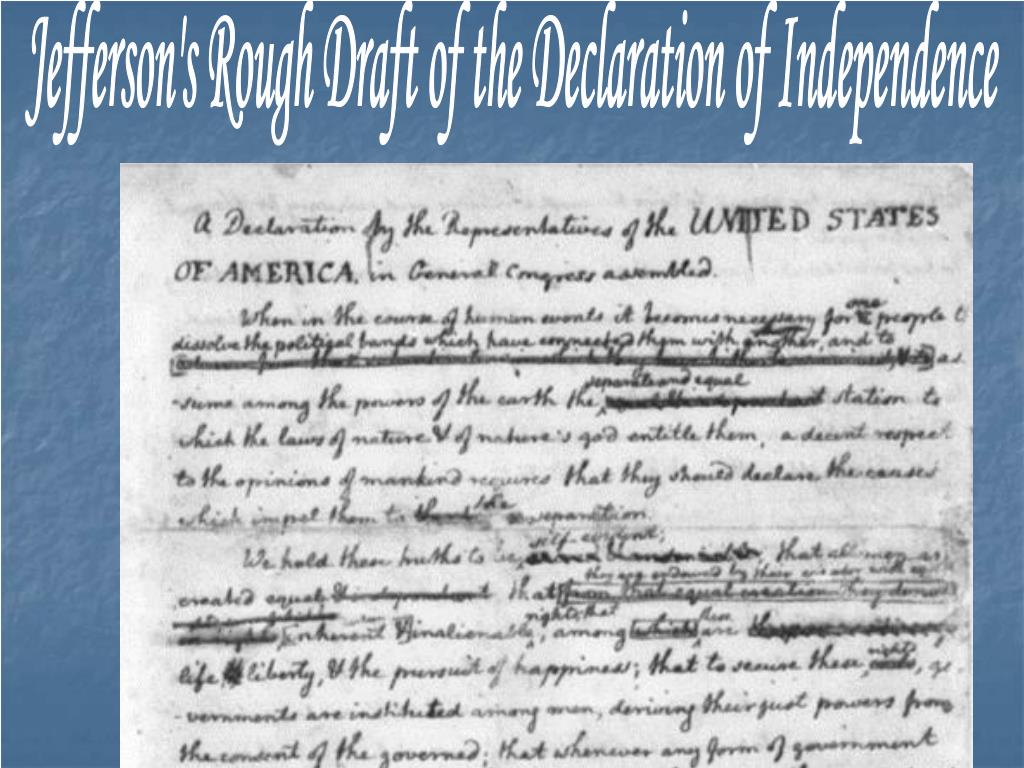 Jefferson's Rough Draft of the Declaration of Independence
A Declaration by the Representatives of the UNITED STATES
OF AMERICA, in General Congress assembled.
When in the course of human events it becomes necessary for one people t
dissolve the political bands which have connected them with another, and to
as
separate and equal
-sume among the powers of the earth the station to
which the laws of nature & of nature's god entitle them, a decent respect
to the opinions of mankind requires that they should declare the causes
which impel them to the separation.
self-evident;
We hold these truths to be that all men are
they are endowed by their creator with
created equal & independent that from that equal creation they derive
rights; that these
inherent & inalienable, among which are
rights
life, & liberty, & the pursuit of happiness; that to secure these, go
-vernments are instituted among men, deriving their just powers from
the consent of the governed; that whenever any form of government